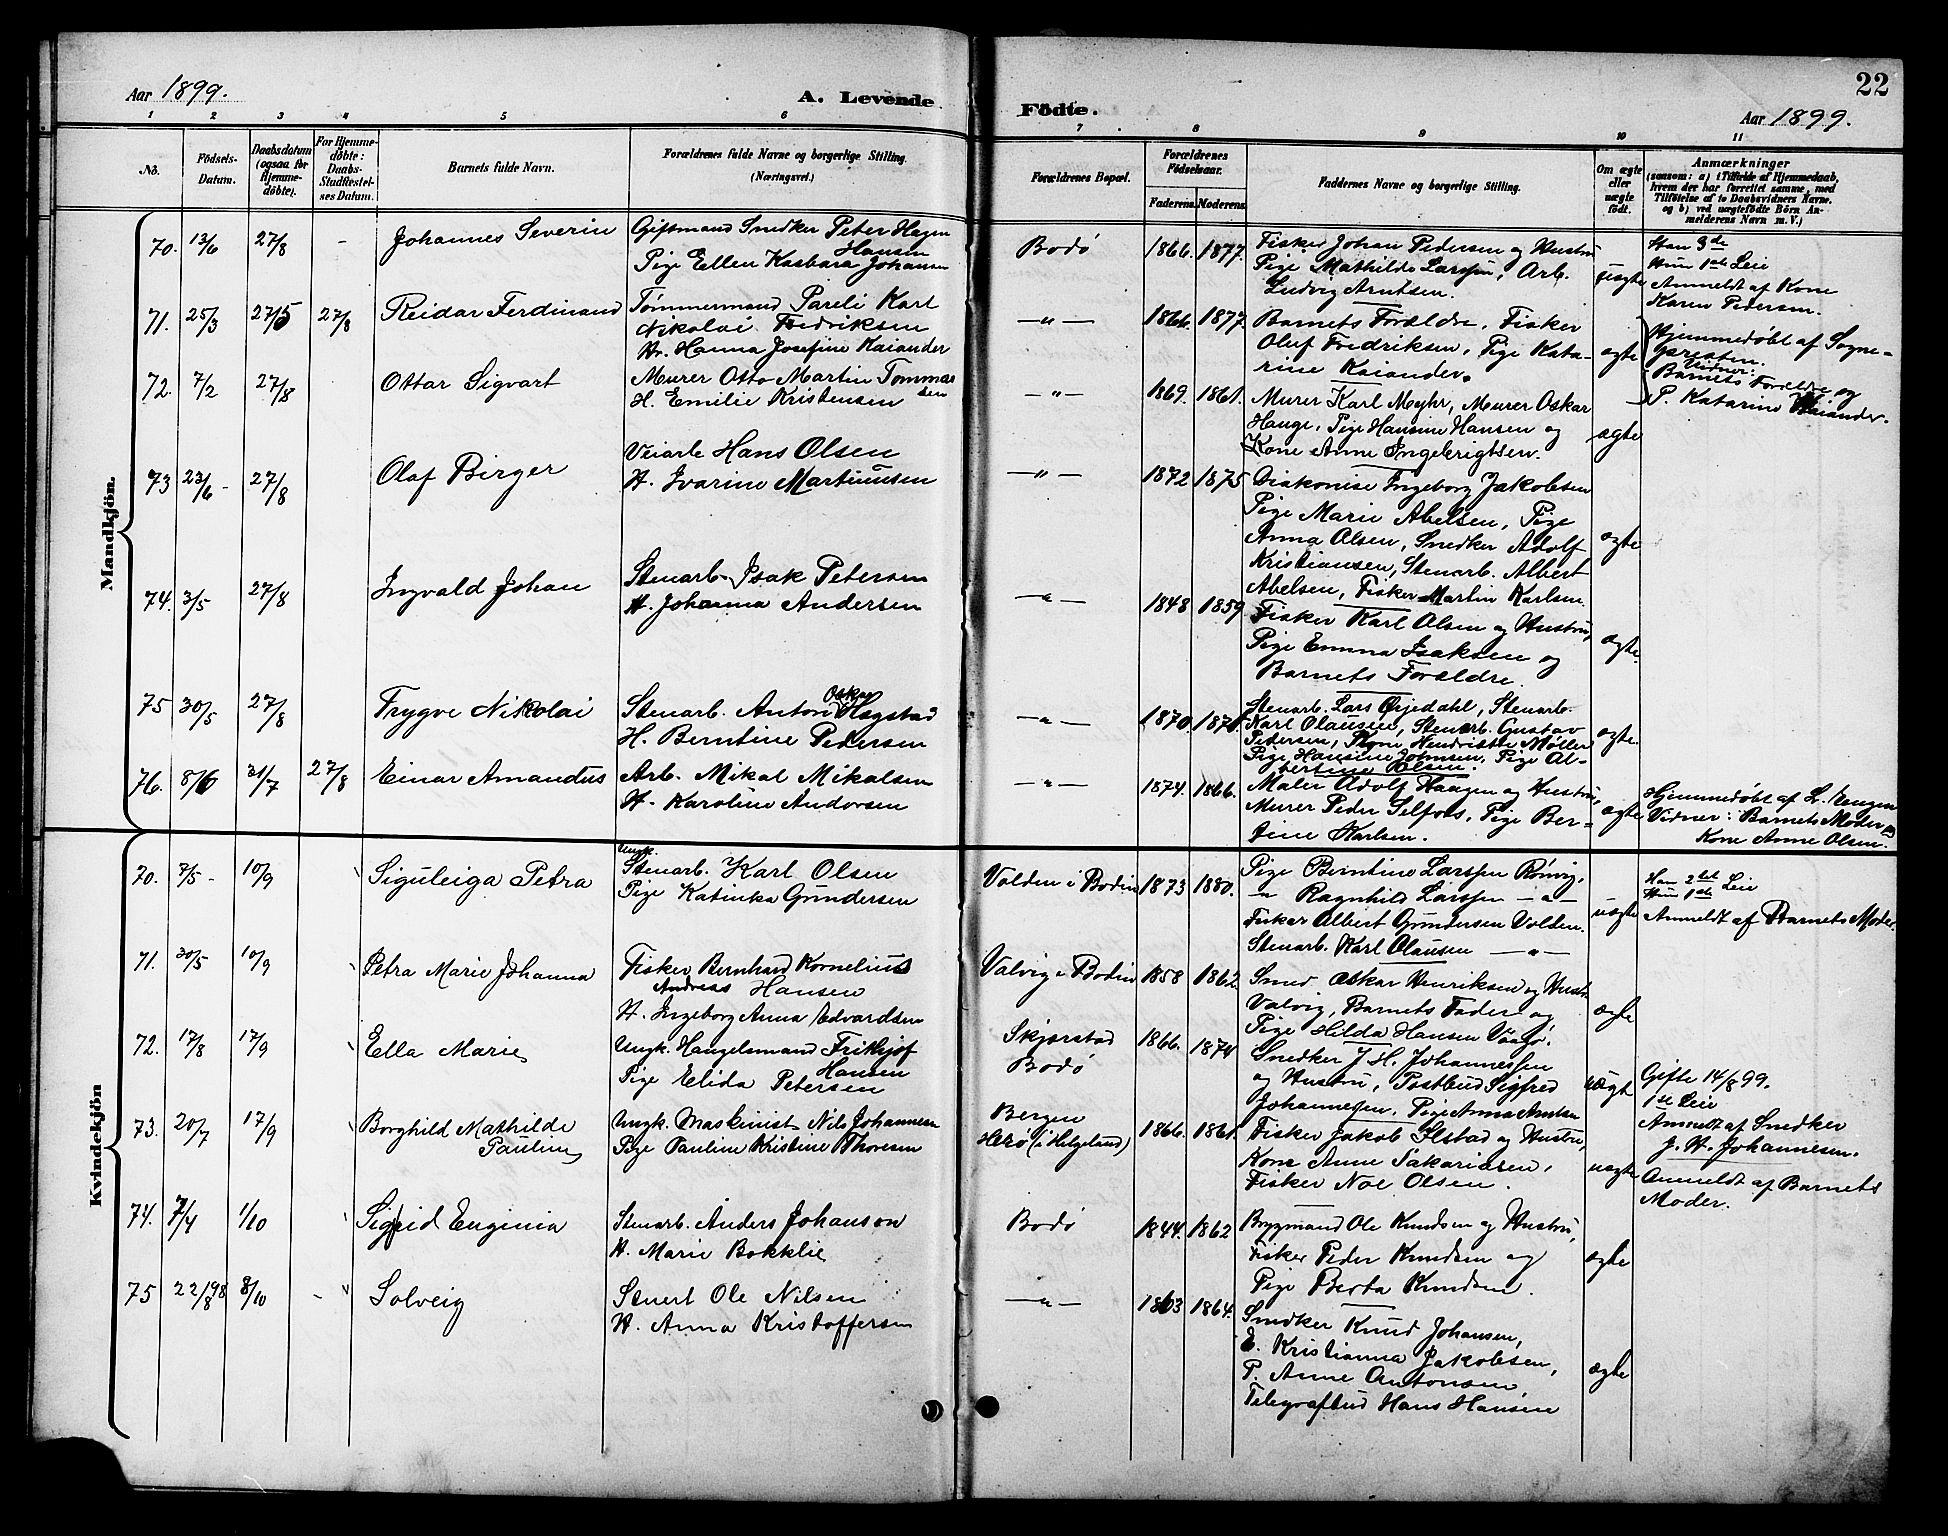 22
Aar 1899.
A. Levende Födte.
Aar 1899.
1 2 3 4 5 6 7 8 9 10 11
No.
Födsels-Datum.
Daabsdatum (ogsaa for Hjemmedöbte).
For Hjemmedöbte: Daabs-Stadfæstelses Datum.
Barnets fulde Navn.
Forældrenes fulde Navne og borgerlige Stilling. (Næringsvei.)
Forældrenes Bopæl.
Forældrenes Födselsaar.
Faderens. Moderens.
Faddernes Navne og borgerlige Stilling.
Om ægte eller uægte födt.
Anmærkninger
(saasom: a) i Tilfælde af Hjemmedaab, hvem der har forrettet samme, med Tilföielse af to Daabsvidners Navne. og b) ved uægtefödte Börn Anmelderens Navn m. V.)
Mandkjön.
70. 13/6 27/8 - Johannes Severin
Giftmand Snedker Peter Hagen
Hansen
Pige Ellen Kasbara Johansen
Bodø 1866. 1877.
Fisker Johan Pedersen og Hustru
Pige Mathilde Larssen, Arb.
Ludvig Arntsen.
uægte
Han 3de
Hun 1ste Leie
Anmeldt af Kone
Karen Pedersen.
71. 25/3 27/5 27/8 Reidar Ferdinand
Tømmermand Pareli Karl
Nikolai Fredriksen
H. Hanna Josefine Kaiander
—"— 1866. 1877.
Barnets Forældre, Fisker
Oluf Fredriksen, Pige Kata-
rine Kaiander.
ægte
Hjemmedøbt af Sogne-
præsten.
Vidner:
Barnets Forældre og
P. Katarine Kaiander.
72. 7/2 27/8 Ottar Sigvart
Murer Otto Martin Tommas
sen
H. Emilie Kristensen
—"— 1869. 1861.
Murer Karl Meyhr, Murer Oskar
Hauge, Pige Hansine Hansen og
Kone Anne Ingebrigtsen.
ægte
73 23/6 - 27/8 Olaf Birger
Veiarb Hans Olsen
H. Ivarine Martinusen
—"— 1872 1875
Diakonise Ingeborg Jakobsen
Pige Marie Abelsen, Pige
Anna Olsen, Snedker Adolf
Kristiansen, Stenarb. Albert
Abelsen, Fisker Martin Karlsen.
ægte
74. 3/5 27/8 Ingvald Johan
Stenarb. Isak Petersen
H. Johanna Andersen
—"— 1848 1859
Fisker Karl Olsen og Hustru,
Pige Emma Isaksen og
Barnets Forældre.
ægte.
75 30/5 27/8 Trygve Nikolai
Oskar
Stenarb. Anton Hegstad
H. Berntine Pedersen
—"— 1870. 1871.
Stenarb. Lars Øijedahl, Stenarb.
Karl Olausen, Stenarb. Gustav
Pedersen, Kone Hendriette Møller
Pige Hansine Johnsen, Pige Al-
bertine Olsen.
ægte.
76. 8/6 31/7 27/8 Einar Amandus
Arb. Mikal Mikalsen
H. Karoline Andersen
—"— 1874. 1866.
Maler Adolf Haagen og Hustru,
Murer Peder Selfors, Pige Ber-
tine Karlsen.
ægte
Hjemmedøbt af L.
Vidner: Barnets Moder og
Kone Anne Olsen.
Kvindekjön
70. 7/5 - 10/9 Siguleiga Petra
Ungk.
Stenarb. Karl Olsen
Pige Katinka Gundersen
Volden i Bodin 1873 1880.
Pige Berntine Larssen Rønvig,
—"— Ragnhild Larssen —"—
Fisker Albert Gundersen Volden.
Stenarb. Karl Olausen —"—
uægte
Han 2det
Hun 1ste Leie
Anmeldt af Barnets Moder.
71. 30/5 10/9 Petra Marie Johanna
Fisker Bernhard Kornelius
Andreas Hansen
H. Ingeborg Anna Edvardsen
Valvig i Bodin 1858 1862
Smed Oskar Henriksen og Hustru
Valvig, Barnets Fader og
Pige Hilda Hansen Vaagø.
ægte
72. 17/8 17/9 Ella Marie
Ungk. Handelsmand Frithjof
Hansen
Pige Elida Petersen
Skjerstad
Bodø
1866. 1874
Snedker J. H. Johannessen
og Hustru, Postbud Sigfred
Johannesen. Pige Anna Arntsen
uægte
Gifte 14/8 99.
1ste Leie
Anmeldt af Snedker
J. H. Johannesen.
73. 20/7 17/9 Borghild Mathilde
Pauline
Ungk. Maskinist Nils Johannesen
Pige Pauline Kristine Thoresen
Bergen
Herø (i Helgeland)
1866. 1861.
Fisker Jakob Ilstad og Hustru,
Kone Anne Sakariasen,
Fisker Noe Olsen.
uægte
Anmeldt af Barnets
Moder.
74. 7/4 1/10 Sigfrid Euginia
Stenarb. Anders Johanson
H. Marie Bokklie
Bodø 1844. 1862
Brygmand Ole Knudsen og Hustru,
Fisker Peder Knudsen og
Pige Berta Knudsen.
ægte
75 22/8 98 8/10 - Solveig
Stuert Ole Nilsen
H. Anna Kristoffersen
—"— 1863 1864.
Snedker Knud Johansen,
E. Kristianna Jakobsen,
P. Anne Antonsen,
Telegrafbud Hans Hansen
ægte